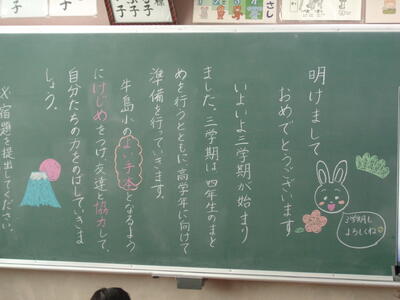 明けまして
おめでとうございます
いよいよ三学期が始まり
ました。三学期は、四年生のまと
めを行うとともに、高学年に向けて
準備を行っていきます。
牛島小のよい子像となるよう
にけじめをつけ、友達と協力して、
自分たちの力をのばしていきま
しょう。
※宿題を提出してください。
3学期も
よろしくね